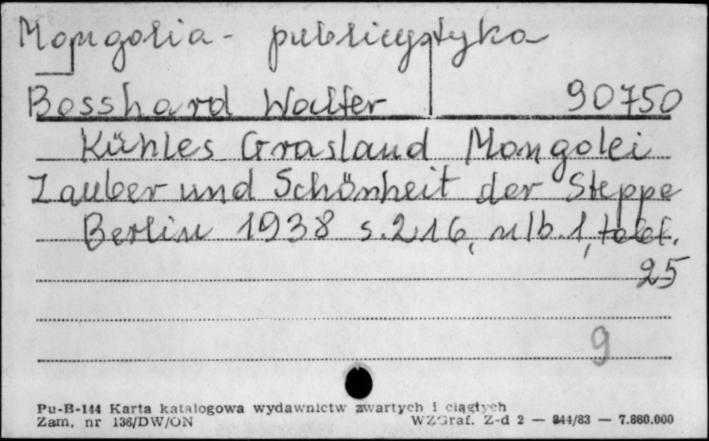 Mongolia - publicystyka
Bosshard Walter 90750
Kühles Grasland Mongolei
Zauber und Schönheit der Steppe
Berlin 1938 s.216, nlb.1,
25
9
Pu-B-144 Karta katalogowa wydawnictw zwartych i ciągłych
Zam. nr 136/DW/ON WZGraf. Z-d 2 — 844/83 — 7.860.000